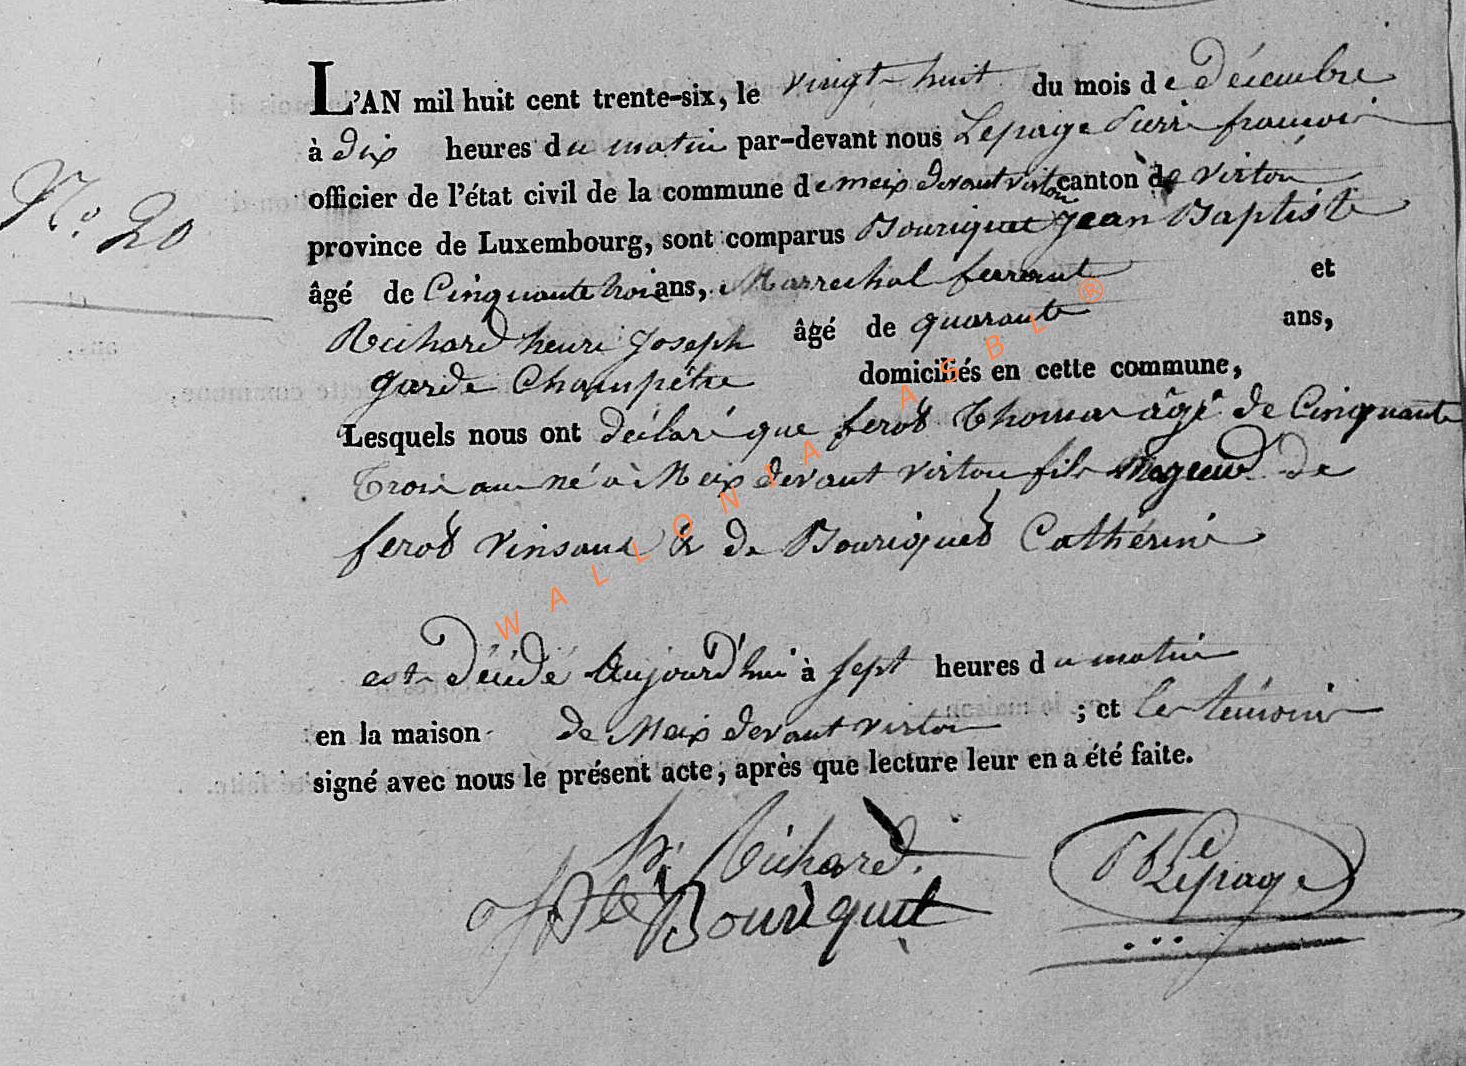 L'AN mil huit cent trente-six, le vingt-huit du mois de décembre
à dix heures du matin par-devant nous Lepage Pierre françois
officier de l'état civil de la commune de meix devant virton canton de virton
province de Luxembourg, sont comparus Bouriquet Jean Baptiste
N.o 20
âgé de Cinquante trois ans, Marrechal ferrant et
Richard henri Joseph âgé de quarante ans,
garde Champêtre domiciliés en cette commune,
Lesquels nous ont déclaré que ferot Thomas âgé de Cinquante
Trois ans né à Meix devant virton fils de
ferot vinsant & de Bouriquet Cathérine
est décédé Aujourd'hui à sept heures du matin
en la maison de Meix devant virton ; et les témoins
signé avec nous le présent acte, après que lecture leur en a été faite.
h. Richard.
JBte Bouriquet
Lepage
WALLONIA ASBL ®